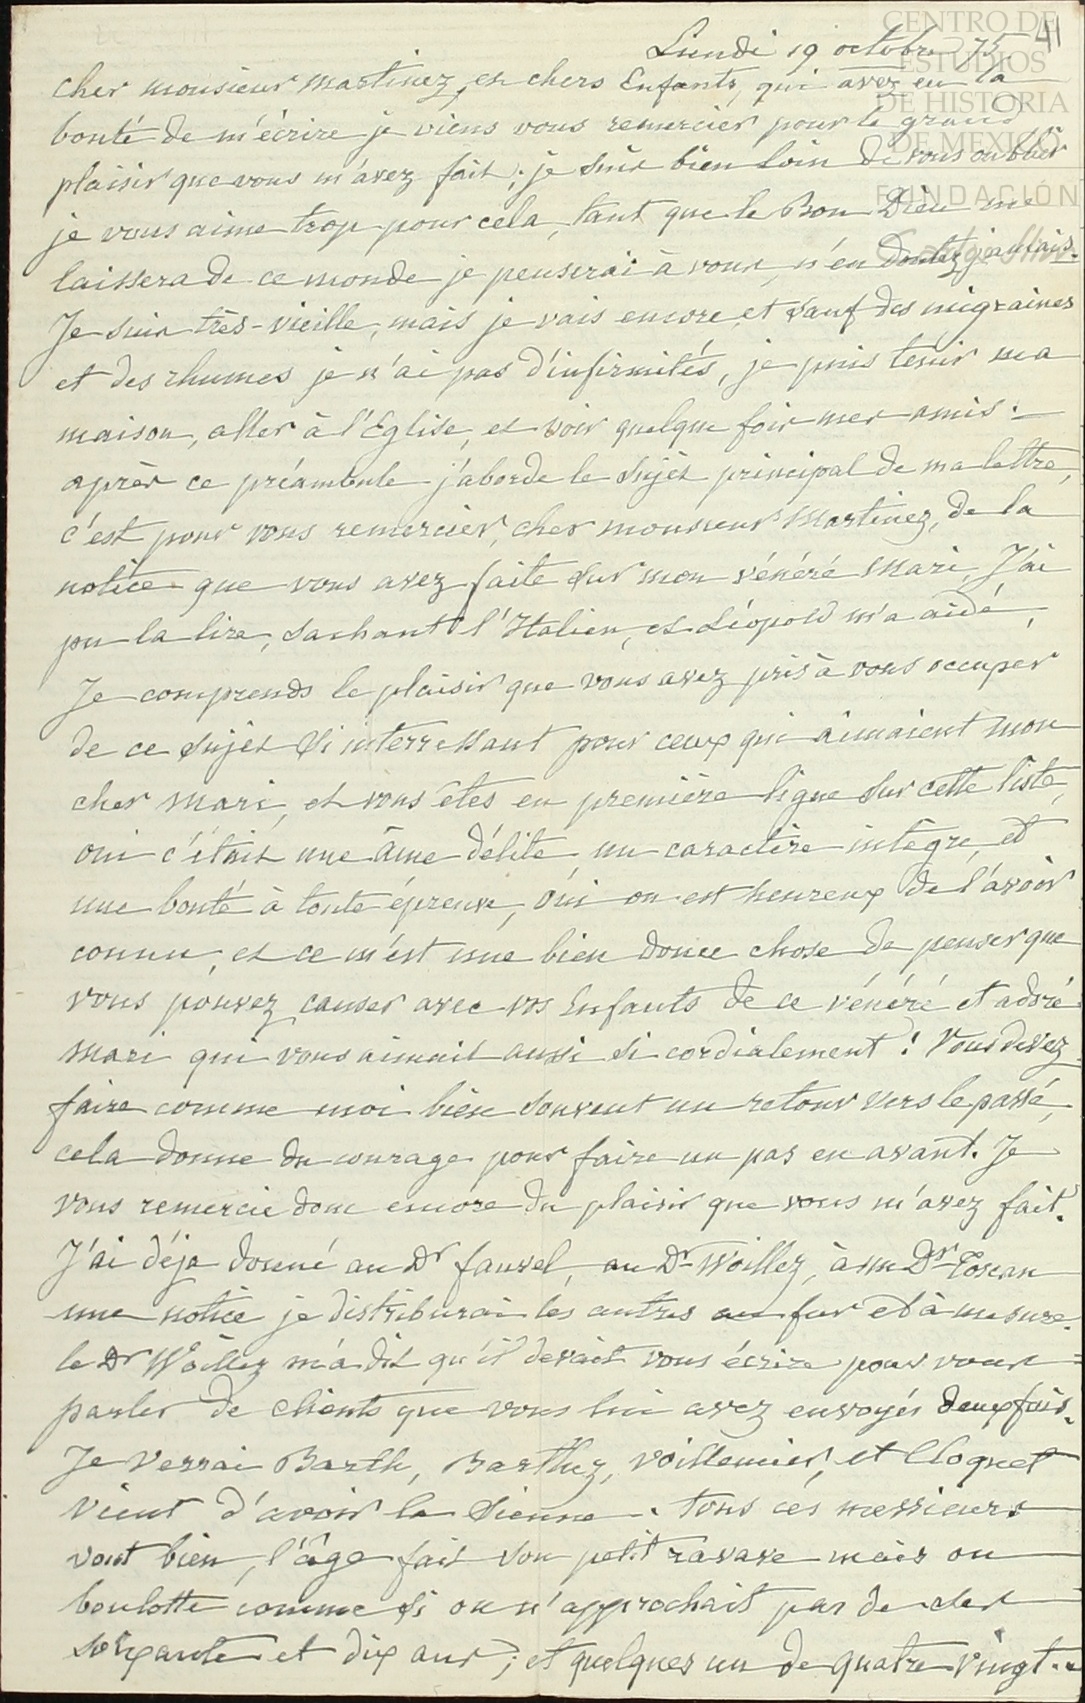 CENTRO DE
ESTUDIOS
DE HISTORIA
DE MEXICO
FUNDACIÓN
41
Lundi 19 octobre 75
Cher monsieur Martinez, et chers Enfants, qui avez eu la
bonté de m'écrire je viens vous remercier pour le grand
plaisir que vous m'avez fait; je suis bien loin de vous oublier
je vous aime trop pour cela, tant que le Bon Dieu me
laissera de ce monde je penserai à vous, n'en doutez jamais.
Je suis très-vieille, mais je vais encore et sauf des migraines
et des rhumes je n'ai pas d'infirmités, je puis tenir ma
maison, aller à l'Eglise, et voir quelque fois mes amis.
après ce préambule j'aborde le sujet principal de ma lettre,
c'est pour vous remercier, cher monsieur Martinez, de la
notice que vous avez faite sur mon vénéré Mari, J'ai
pu la lire, sachant l'Italien, et Léopold m'a aidé,
Je comprends le plaisir que vous avez pris à vous occuper
de ce sujet si interressant pour ceux qui aimaient mon
cher Mari, et vous êtes en première ligne sur cette liste,
oui c'était une âme délite, un caractère intègre, et
une bonté à toute épreuve, oui on est heureux de l'avoir
connu, et ce m'est une bien douce chose de penser que
vous pouvez causer avec vos Enfants de ce vénéré et adoré
Mari qui vous aimait aussi si cordialement! Vous devez
faire comme moi bien souvent un retour vers le passé,
cela donne du courage pour faire un pas en avant. Je
vous remercie donc encore du plaisir que vous m'avez fait.
J'ai déja donné au Dr fauvel, au Dr Woillez, à Dr
une notice je distriburai les autres au fur et à mesure.
le Dr Woillez m'a dit qu'il devait vous écrire pour vous
parler de clients que vous lui avez envoyés deux fois.
Je verrai Barth, Barthez, Voillemier, et Cloquet
vient d'avoir la sienne. tous ces messieurs
vont bien, l'âge fait son petit ravage mais on
boulotte comme si on n'approchait pas de des
soixante et dix ans; et quelques un de quatre vingt.